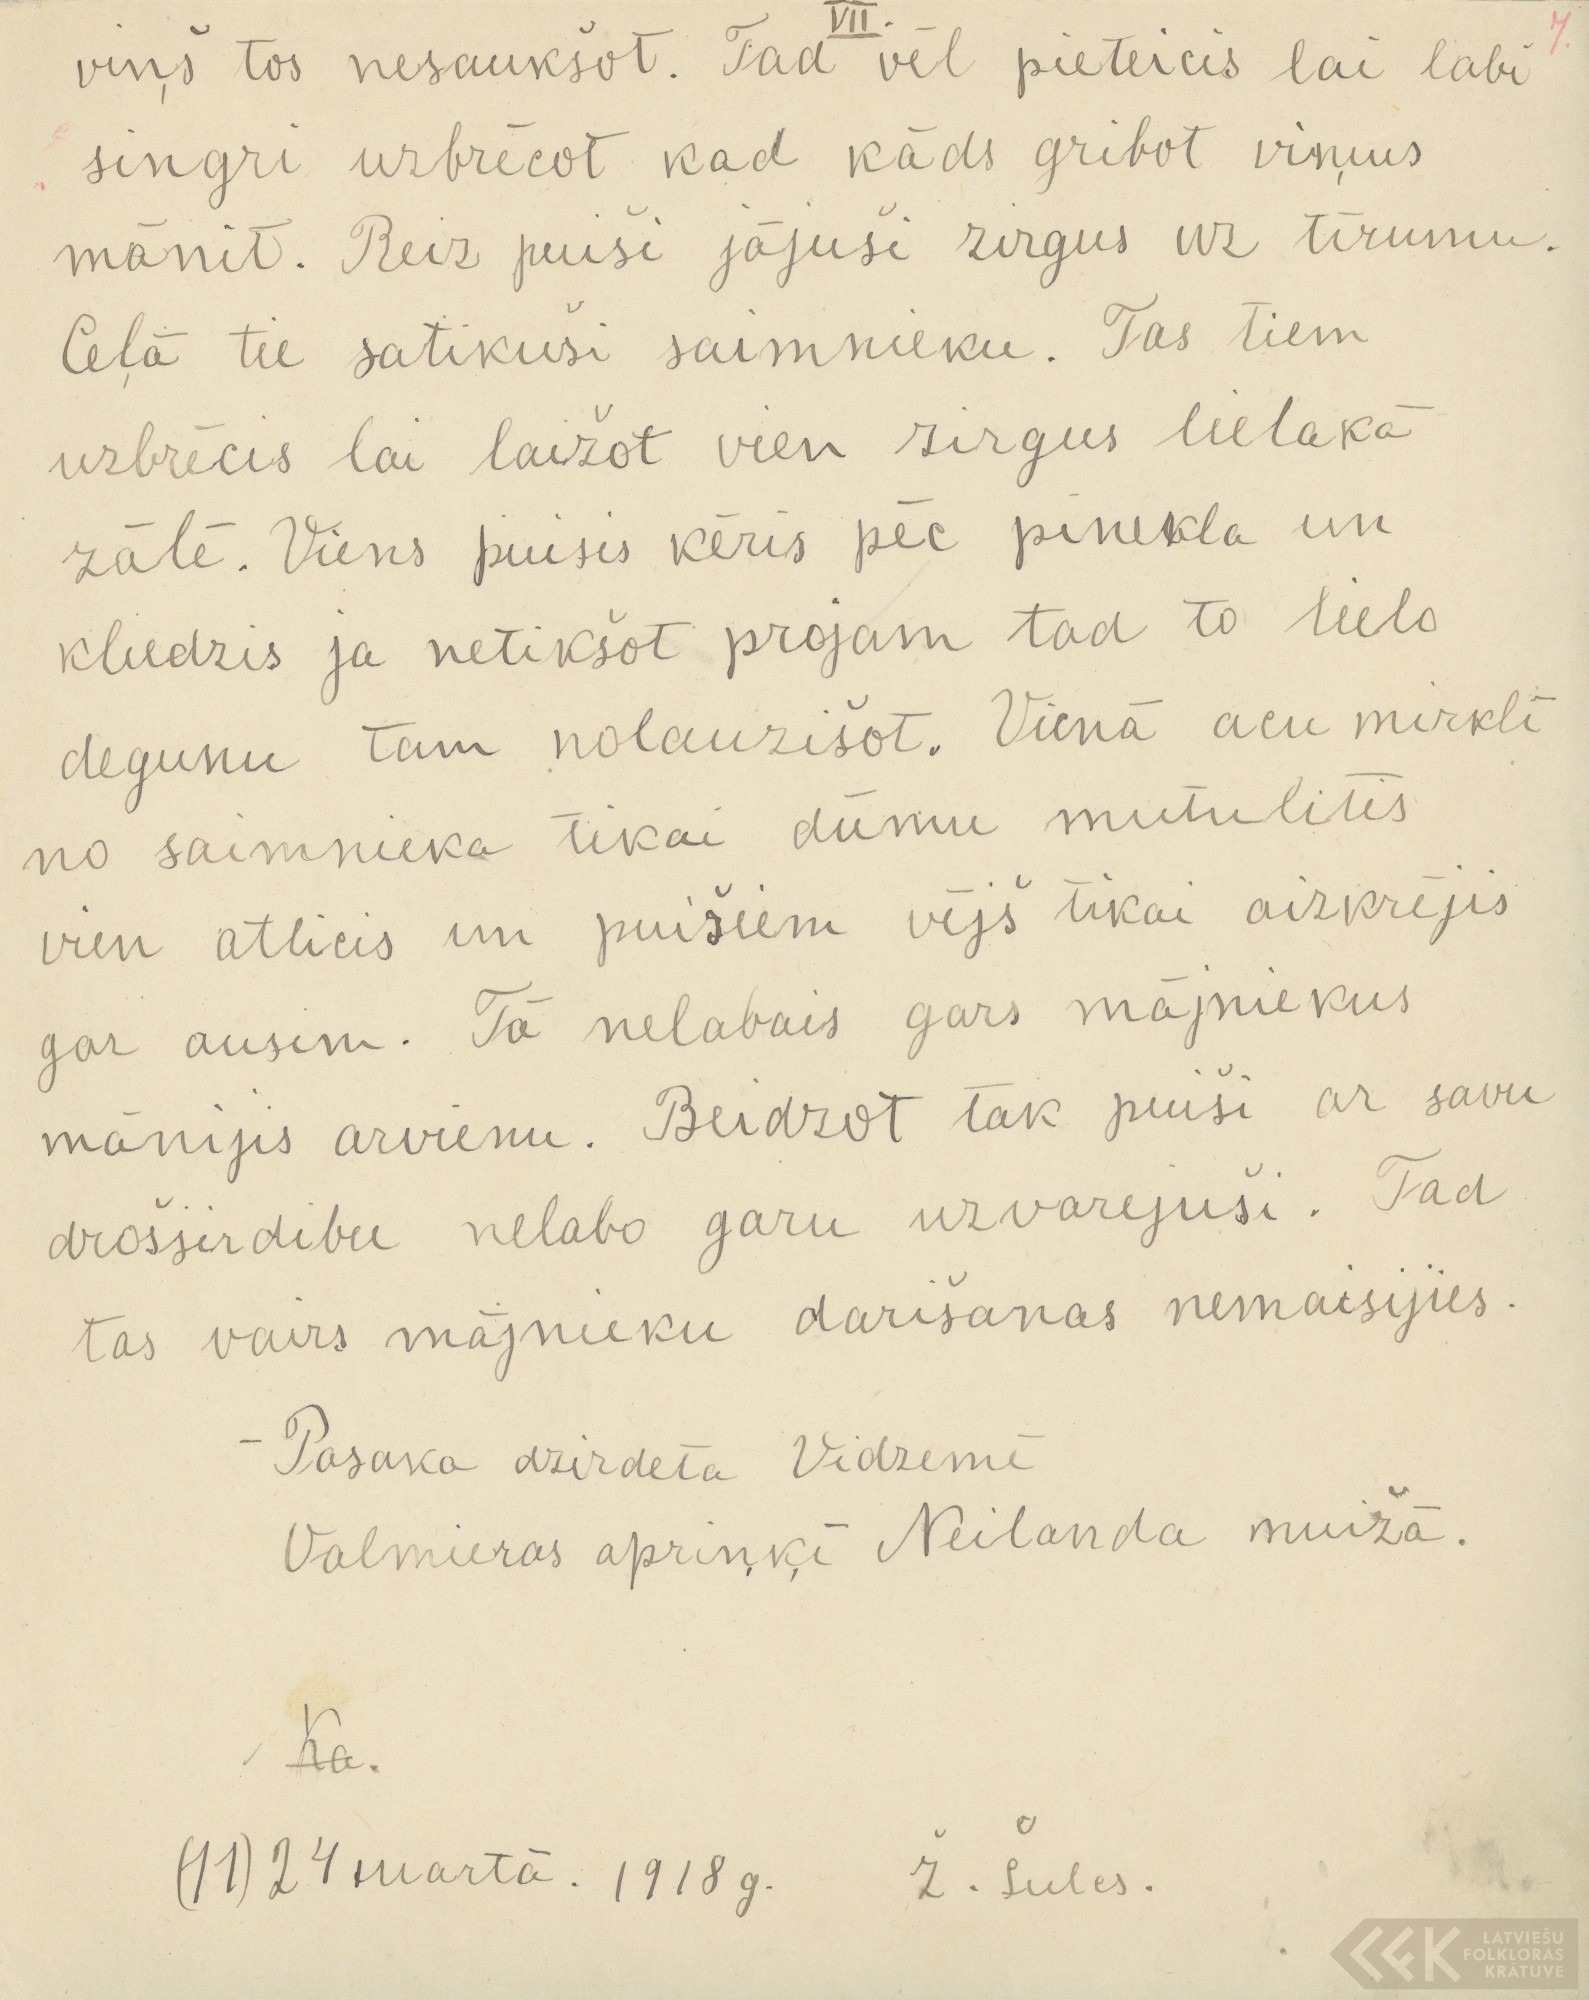 VII.
7.
viņš tos nesaukšot. Tad vēl pieteicis lai labi
singri uzbrēcot kad kāds gribot viņus
mānit. Reiz puiši jājuši zirgus uz tīrumu.
Ceļā tie satikuši saimnieku. Tas tiem
uzbrēcis lai laižot vien zirgus lielakā
zālē. Viens puisis ķēris pēc pinekla un
kliedzis ja netikšot projam tad to lielo
degunu tam nolauzišot. Vienā acu mirklī
no saimnieka tikai dūmu mutulitis
vien atlicis un puišiem vējš tikai aizkrējis
gar ausim. Tā nelabais gars mājniekus
mānijis arvienu. Beidzot tak puiši ar savu
drošsirdibu nelabo garu uzvarejuši. Tad
tas vairs mājnieku darišanas nemaisijies.
- Pasaka dzirdeta Vidzemē
Valmieras apriņķī Neilanda muižā.
Ka.
(11) 24 martā. 1918 g. Ž. Šules.
LATVIEŠU
FOLKLORAS
KRĀTUVE